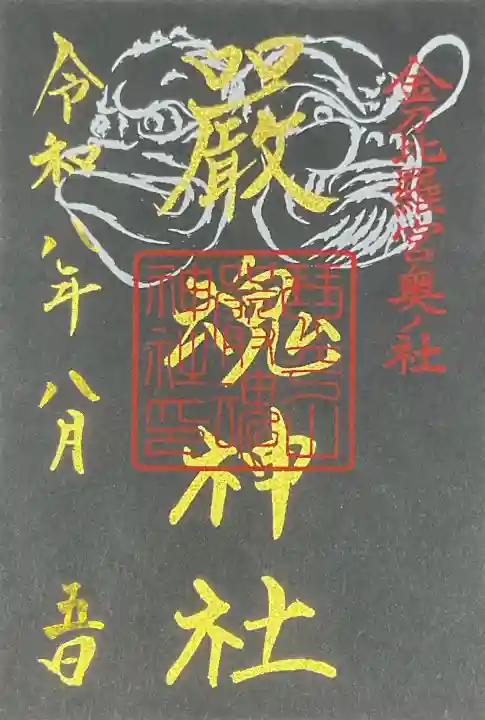 金刀比羅宮奥ノ社
嚴魂神社
令和八年八月五日